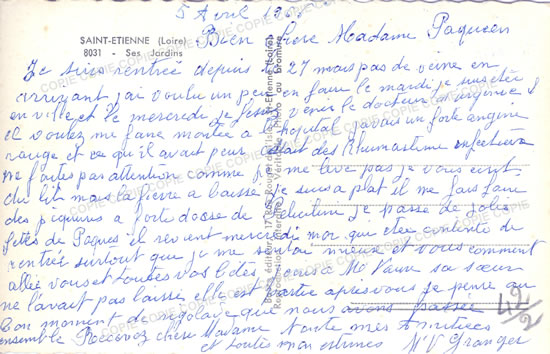 5 Avril
SAINT-ETIENNE (Loire)
8031 - Ses Jardins
Bien Chere Madame Paqueen
Je suis rentrée depuis le 27 mais pas de veine en
arrivant j'ai voulu un peu en faire le mardi je suis
en ville et le mercredi je fesais venir le docteur d'urgence
il voulez me faire montée a l'hopital j'avais un forte angine
rouge et ce qu'il avait peur était des Rhumastime infectieux
me foutes pas attention comme je me leve pas je vous ecrit
du lit mais la fievre a baissé je suis a plat il me fais faire
des piqures a forte dose de je passe de jolies
fetes de Paques il revient mercredi moi que etee contente de
rentrée surtout que je me sentai mieux et vous comment
allié vous et toutes vos betes Mr sa soeur
ne l'avait pas laissé elle est partie apres vous je pense au
bon moment de rigolade que nous avons passée
ensemble Recevez chere Madame toute mes Amitiees
et toutes mon estimes Mme V Granger
42/2
COPIE COPIE COPIE